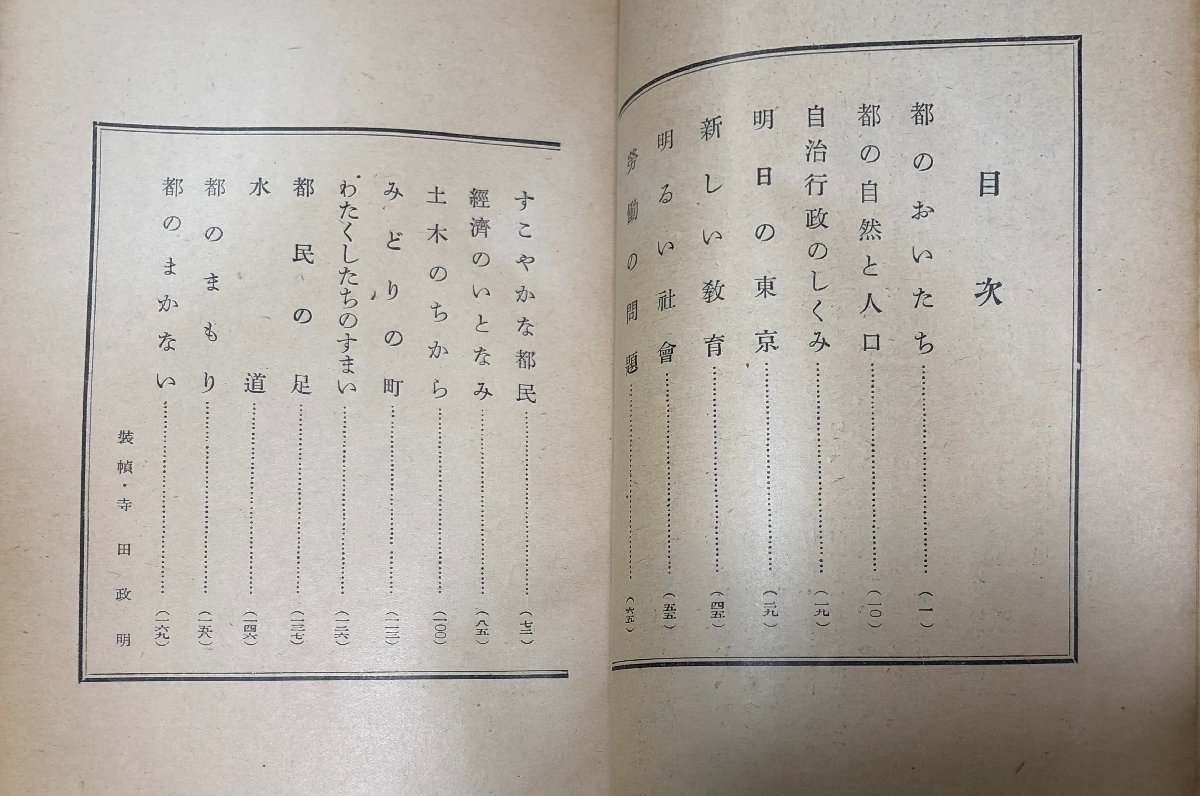 目次
都のおいたち……(一)
都の自然と人口……(一〇)
自治行政のしくみ……(一九)
明日の東京……(二九)
新しい教育……(四五)
明るい社會……(五五)
勞働の問題……(六五)
すこやかな都民……(七二)
經濟のいとなみ……(八五)
土木のちから……(一〇〇)
みどりの町……(一一三)
わたくしたちのすまい……(一二六)
都民の足……(一三七)
水道……(一四六)
都のまもり……(一五八)
都のまかない……(一六九)
裝幀・寺田政明